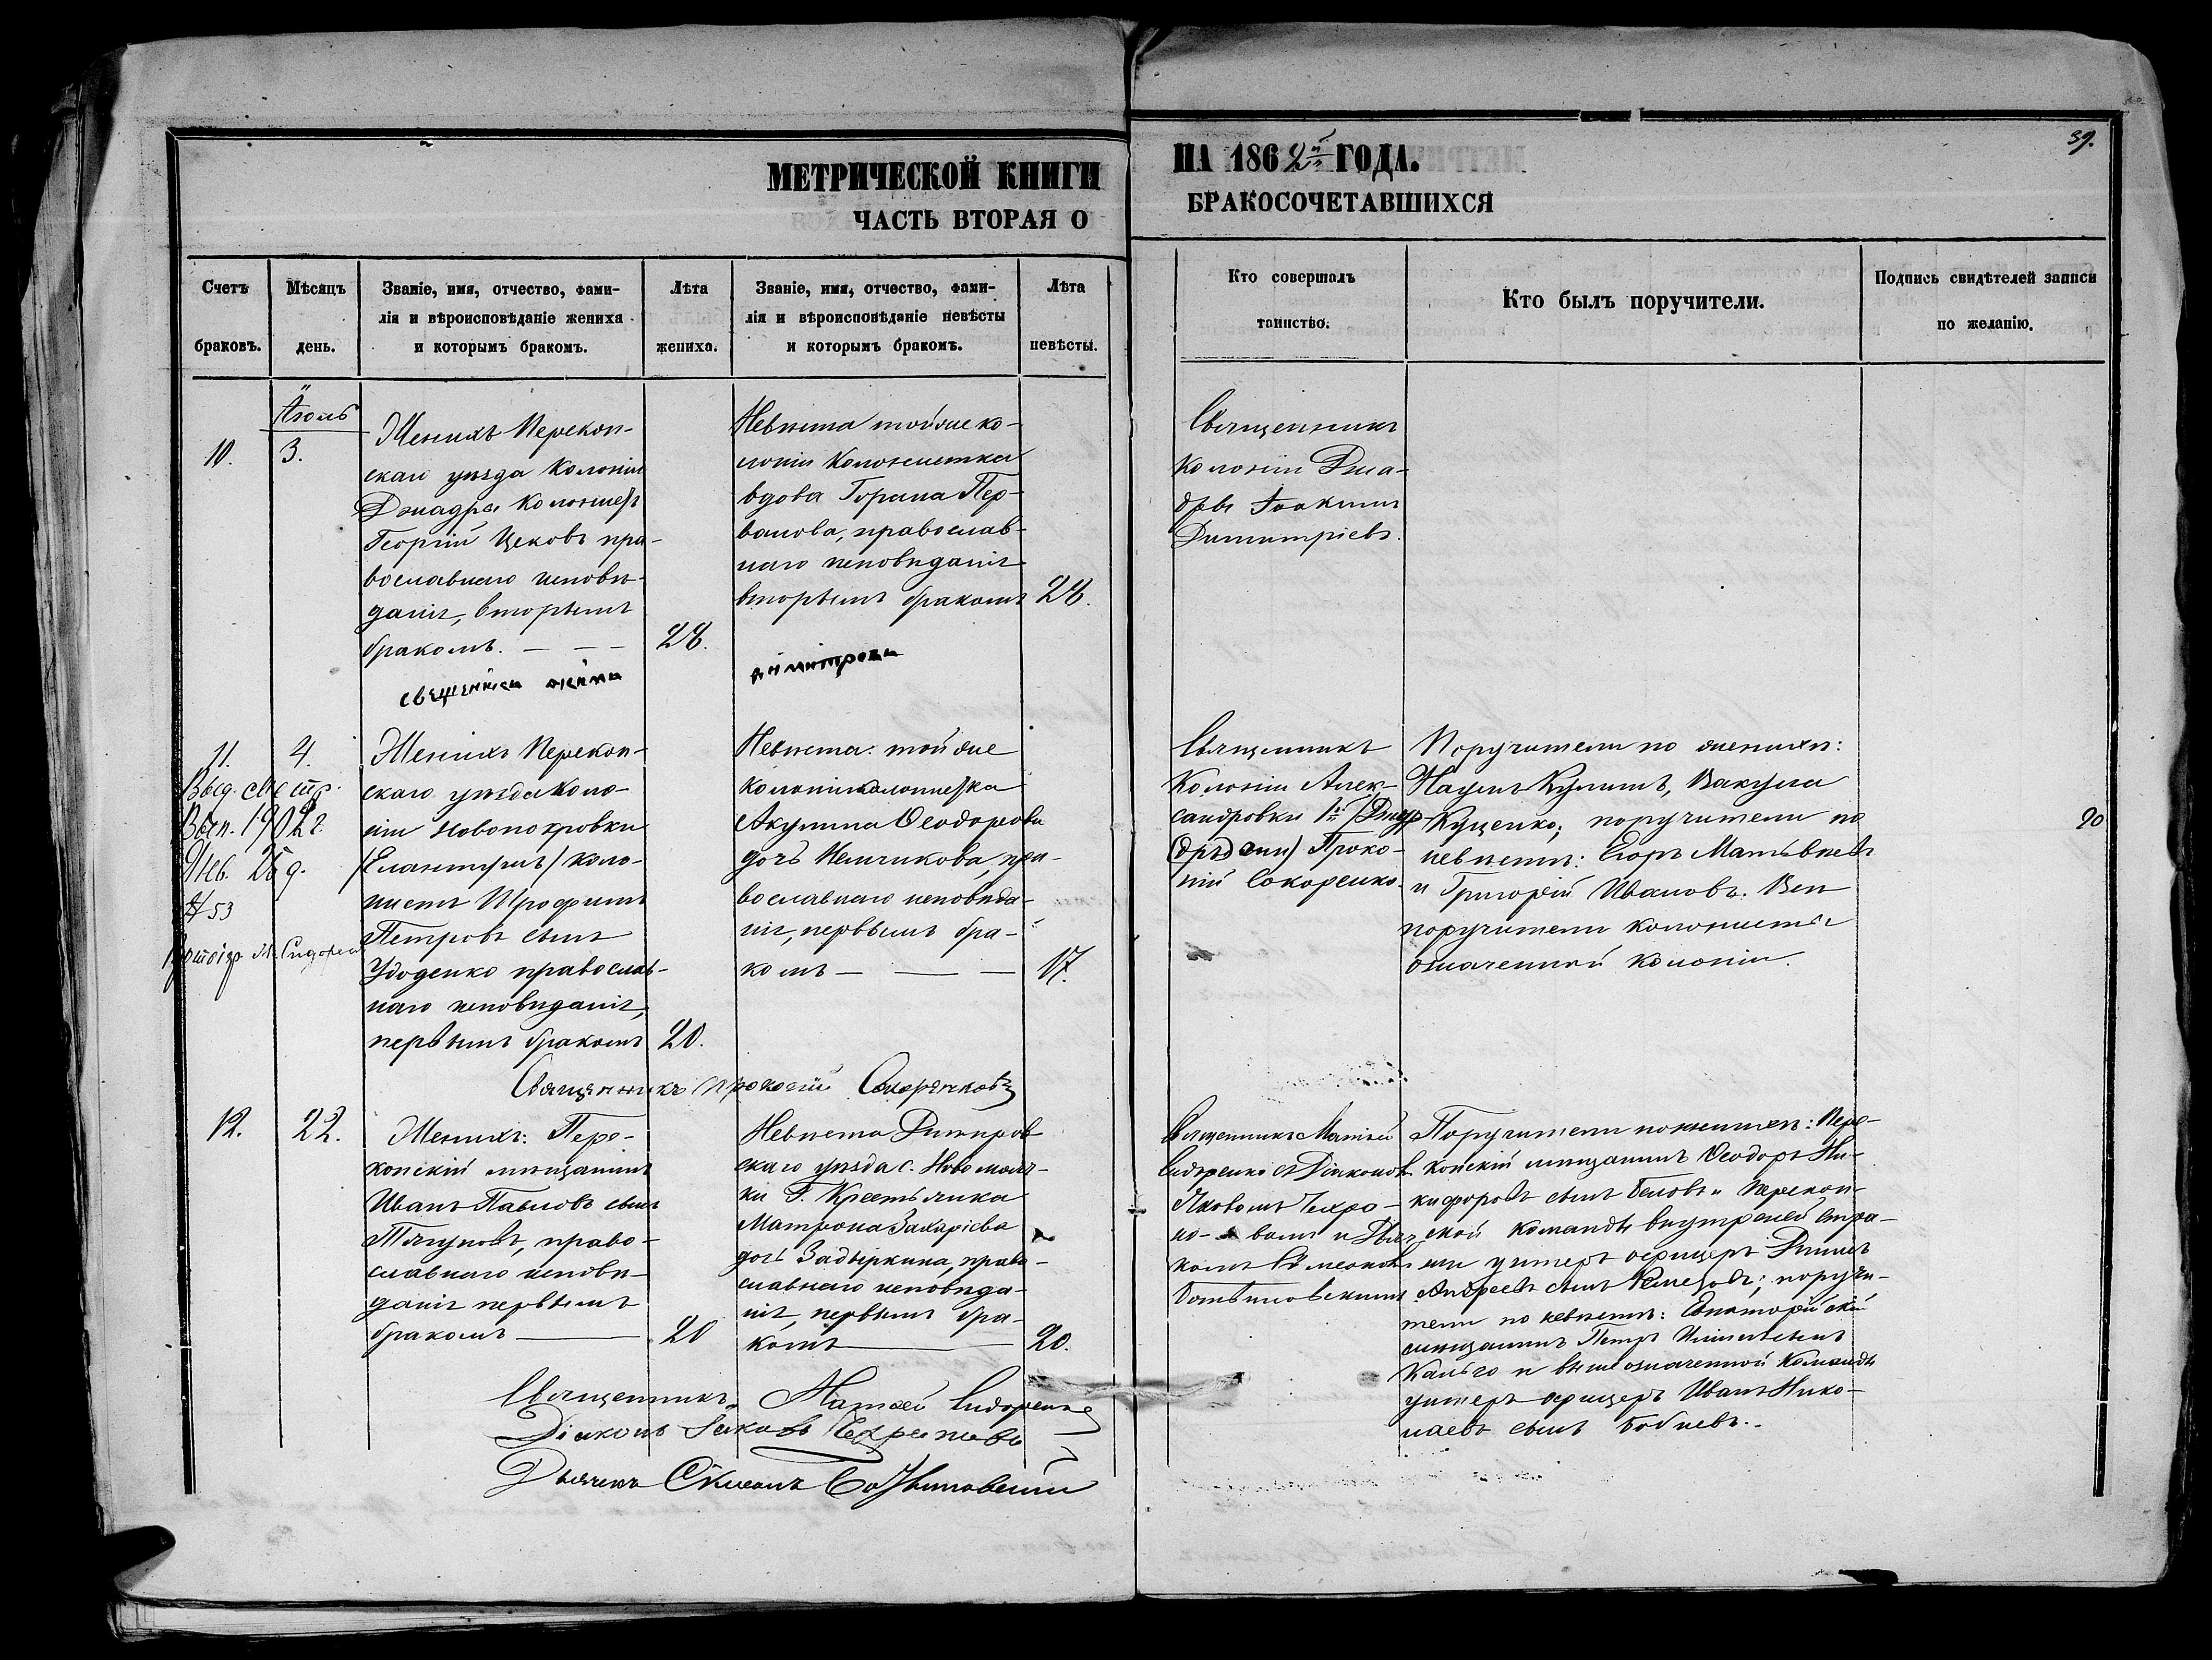 МЕТРИЧЕСКОЙ КНИГИ
ЧАСТЬ ВТОРАЯ О
НА 1862й ГОДА.
БРАКОСОЧЕТАВШИХСЯ
39.
Счетъ
браковъ.
Мѣсяцъ
день.
Званіе, имя, отчество, фами-
лія и вѣроисповѣданіе жениха
и которымъ бракомъ.
Лѣта
жениха.
Званіе, имя, отчество, фами-
лія и вѣроисповѣданіе невѣсты
и которымъ бракомъ.
Лѣта
невѣсты.
Кто совершалъ
таинство.
Кто былъ поручители.
Подпись свидѣтелей записи
по желанію.
10.
3.
Женихъ Перекоп-
скаго уѣзда Колоніи
Колонистъ
Георгій Цековъ пра-
вославнаго исповѣ-
данія, вторымъ
бракомъ.
28.
Невѣста тойже ко-
лоніи Колонистка
вдова Пер-
ванова, православ-
наго исповѣданія
вторымъ бракомъ
28.
Священникъ
Колоніи Джа-
дры Іоакимъ
Димитріевъ.
11.
4.
Выд. мет.
1902 г.
№ 53
Женихъ Перекоп-
скаго уѣзда Коло-
ніи Новопокровки
коло-
нистъ Трофимъ
Петровъ сынъ
Удоденко православ-
наго исповѣданія,
первымъ бракомъ
20.
Невѣста тойже
колоніи колонистка
Акулина Ѳеодорова
дочь Немчикова, пра-
вославнаго исповѣда-
нія, первымъ бра-
комъ
17.
Священникъ
Колоніи Алек-
сандровки
Проко-
пій Сокоренко.
Поручители по женихѣ:
Наумъ Кулишъ, Вакула
Куценко; поручители по
невѣстѣ: Егоръ Матвѣевъ
и Григорій Ивановъ. Всѣ
поручители колонисты
означенной Колоніи.
20
Священникъ Прокопій
12.
22.
Женихъ: Пере-
копскій мѣщанинъ
Иванъ Павловъ сынъ
право-
славнаго исповѣ-
данія первымъ
бракомъ
20
Невѣста Днѣпров-
скаго уѣзда с. Новомаяч-
ки Г. Крестьянка
Матрона Захаріева
дочь Задыркина, право-
славнаго исповѣда-
нія, первымъ бра-
комъ
20.
Священникъ Матѳей
Сидоренко съ Діакономъ
Яковомъ Чехра-
новымъ и Дьяч-
комъ Симеономъ
Поручители по женихѣ: Пере-
копскій мѣщанинъ Ѳеодоръ Ни-
кифоровъ сынъ Бѣловъ и Перекоп-
ской Команды внутренней стра-
жи унтеръ офицеръ
Андреевъ сынъ поручи-
тели по невѣстѣ: Евпаторійскій
мѣщанинъ Петръ
и вышеозначенной Команды
унтеръ офицеръ Иванъ Нико-
лаевъ сынъ
Священникъ Матѳей Сидоренко
Діаконъ Іаковъ
Дьячекъ Сѵмеонъ